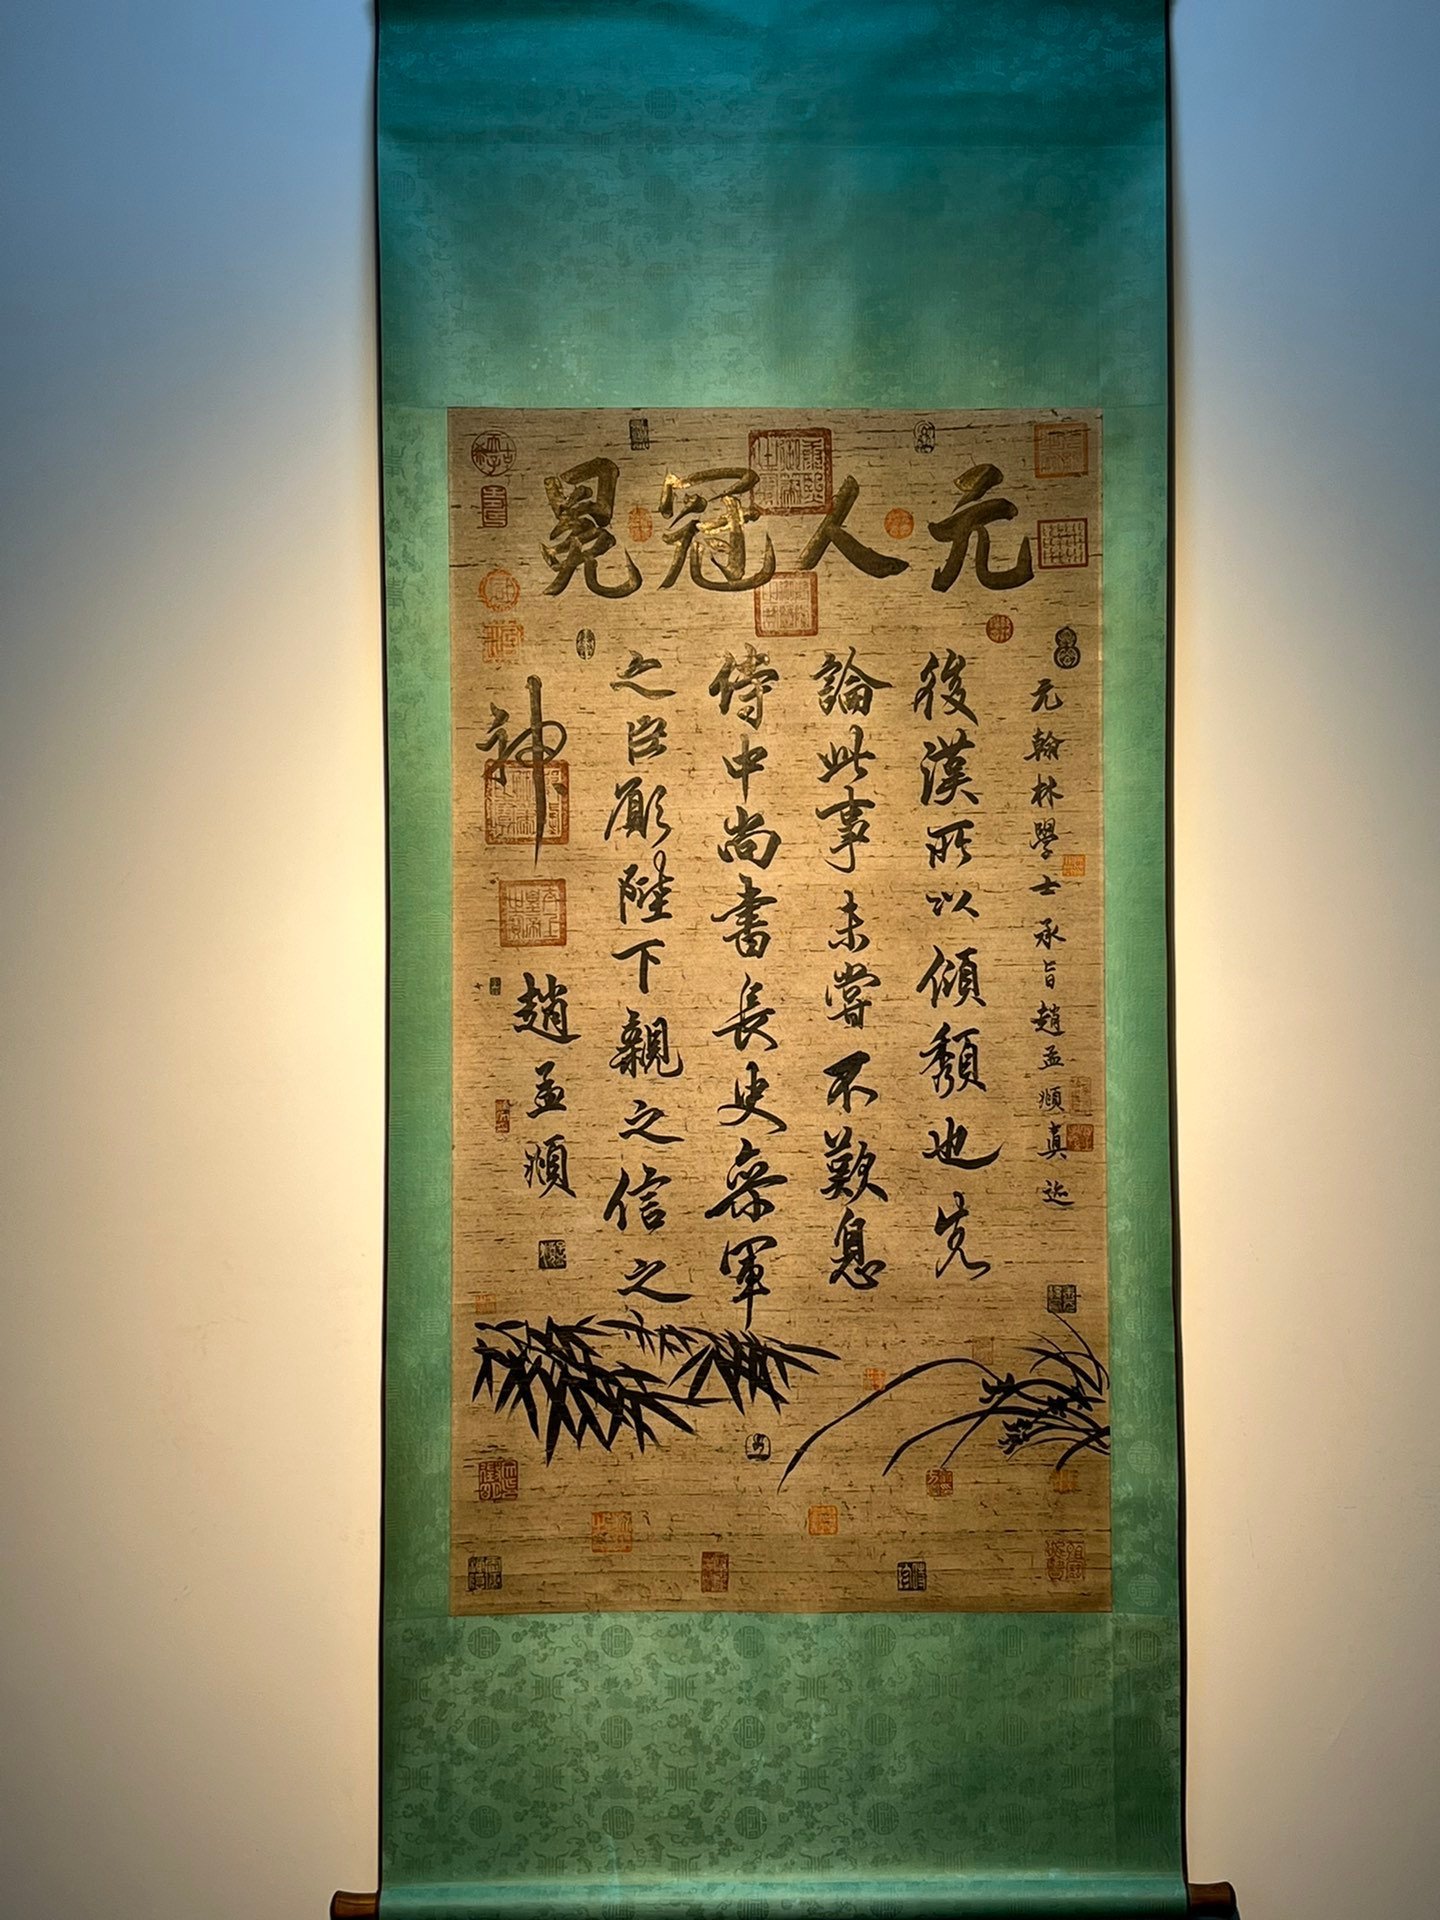 元人冠冕
元翰林學士承旨趙孟頫真迹
後漢所以傾頹也先
論此事未嘗不歎息
侍中尚書長史參軍
之臣願陛下親之信之
神
趙孟頫